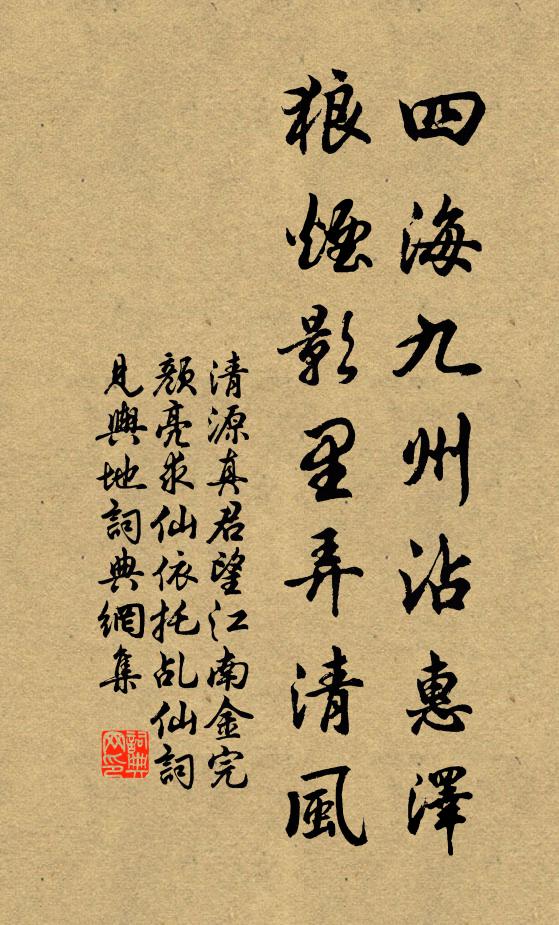 四海九州沾惠澤
狼煙影里弄清風
清源真君望江南金完
顏亮求仙依托乩仙詞
見輿地詞典網集
詞典網印